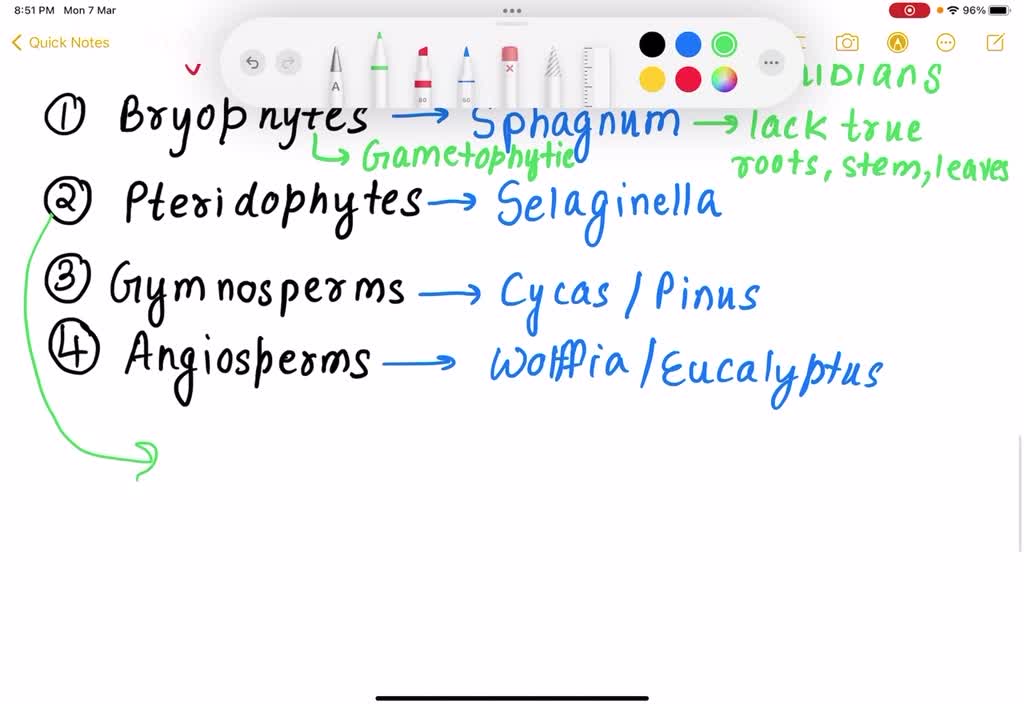 8:51 PM Mon 7 Mar 96%
Quick Notes
① Bryophytes → Sphagnum → lack true
↳ Gametophytic roots, stem, leaves
② Pteridophytes → Selaginella
③ Gymnosperms → Cycas / Pinus
④ Angiosperms → Wolffia / Eucalyptus